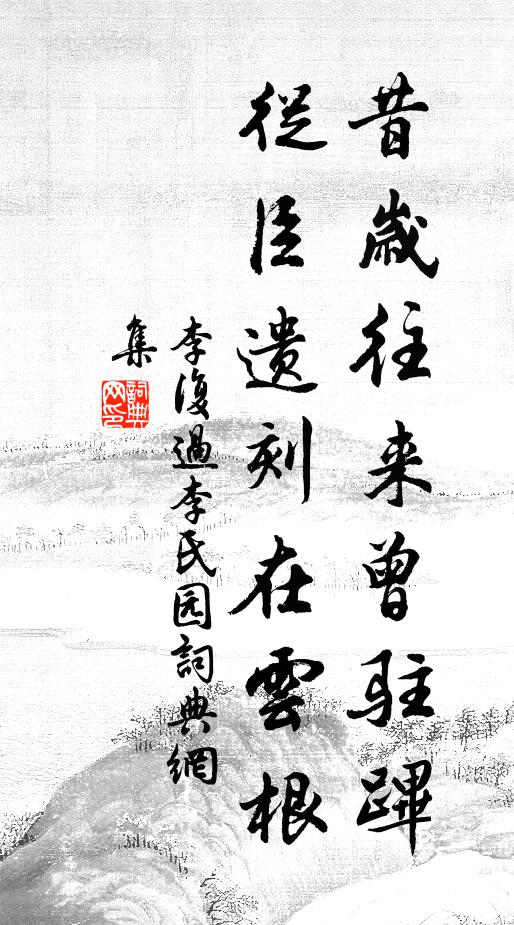 昔歲往来曾駐蹕
從臣遺刻在雲根
李復過李氏园詞典網
集
詞典
网印